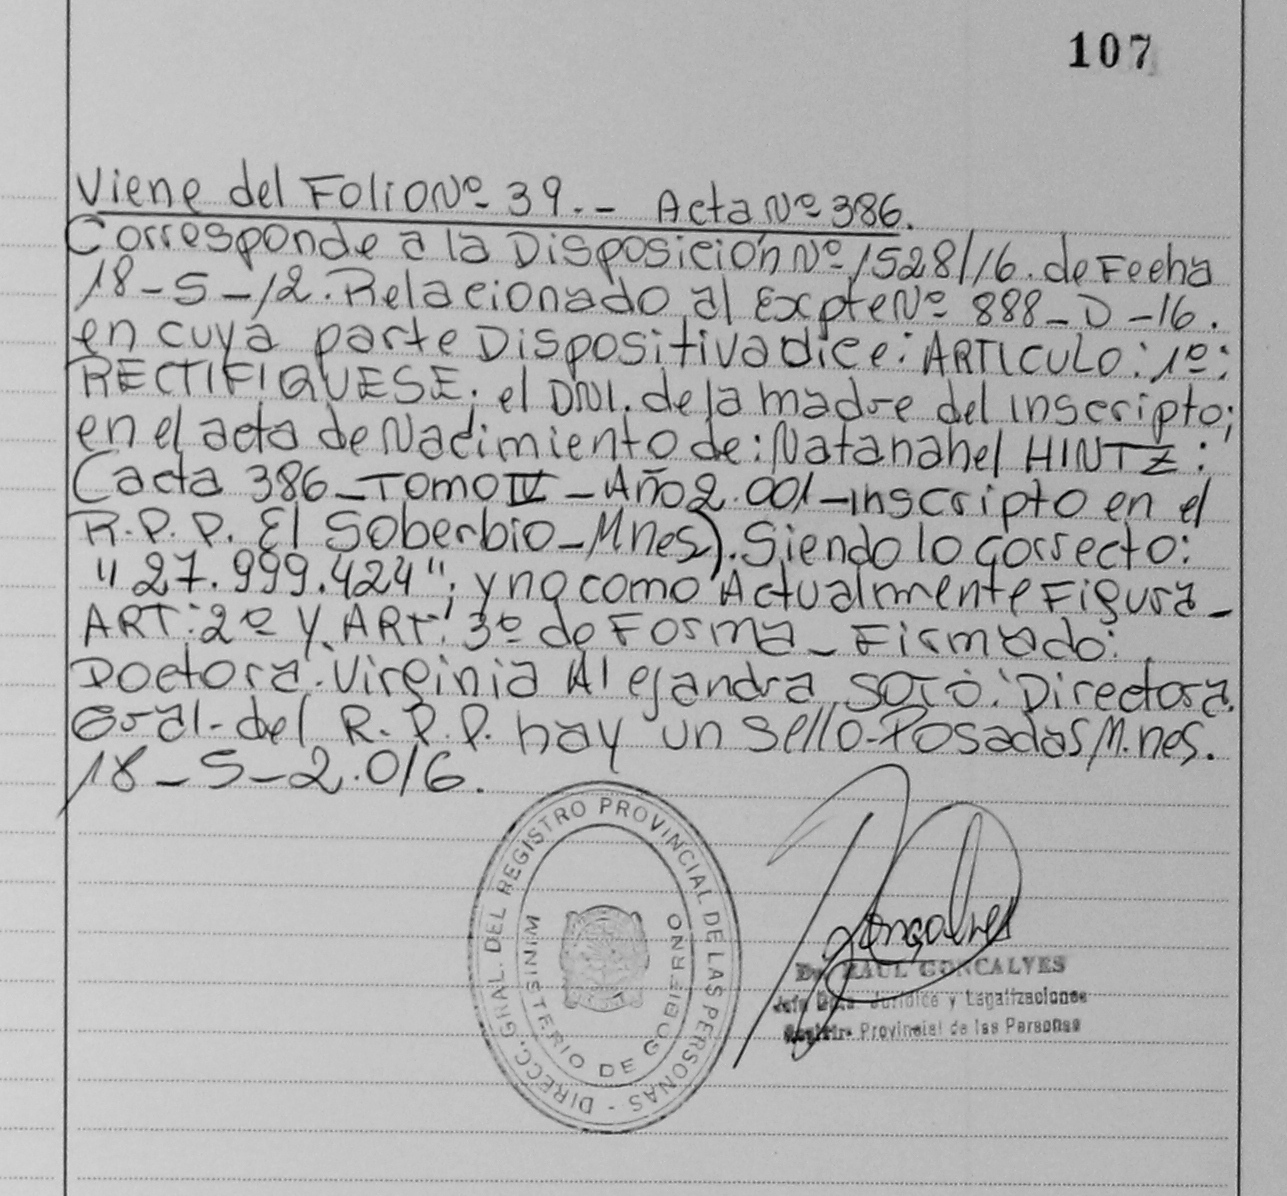 107
Viene del Folio Nº 39.- Acta Nº 386.
Corresponde a la Disposición Nº 1528/16. de Fecha
18-5-12. Relacionado al Expte Nº 888-D-16.
en cuya parte Dispositiva dice: ARTICULO: 1º:
RECTIFIQUESE; el DNI. de la madre del inscripto;
en el acta de Nacimiento de: Natanahel HINTZ:
(acta 386-Tomo IV-Año 2.001-inscripto en el
R.P.P. El Soberbio-Mnes). Siendo lo correcto:
"27.999.424"; y no como Actualmente Figura-
ART: 2º Y ART: 3º de Forma- Firmado:
Doctora: Virginia Alejandra SOTO: Directora
Gral- del R.P.P. hay un sello-Posadas M.nes.
18-5-2.016.
DIRECC. GRAL. DEL REGISTRO PROVINCIAL DE LAS PERSONAS -
MINISTERIO DE GOBIERNO
Gonçalves
Dr. RAUL GONCALVES
Jefe Dpto. Jurídico y Legalizaciones
Registro Provincial de las Personas